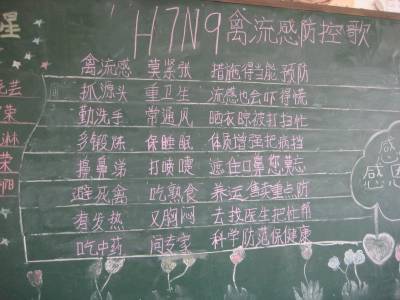 H7N9禽流感防控歌
禽流感 莫紧张 措施得当能预防
抓源头 重卫生 流感也会吓得慌
勤洗手 常通风 晒衣晾被打扫忙
多锻炼 保睡眠 体质增强把病挡
擤鼻涕 打喷嚏 遮住口鼻您莫忘
避死禽 吃熟食 养运售表重点防
有发热 又胸闷 去找医生把忙帮
吃中药 问专家 科学防范保健康
星
荣
淋
荣
感
感恩